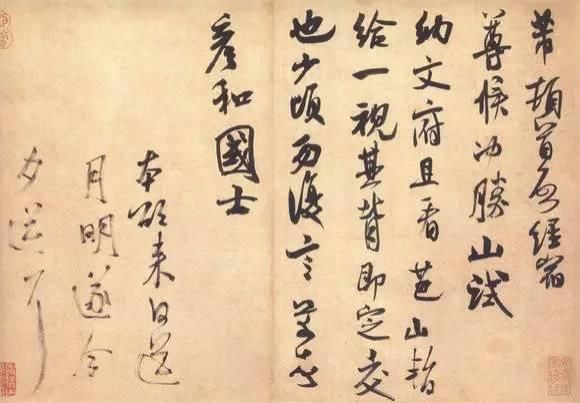 芾頓首啓經宿
尊候冲勝山試
納文府且看芭山暫
給一視其背即定交
也少頃勿復言芾頓首
彥和國士
本欲來日送
月明遂今
夕送耳